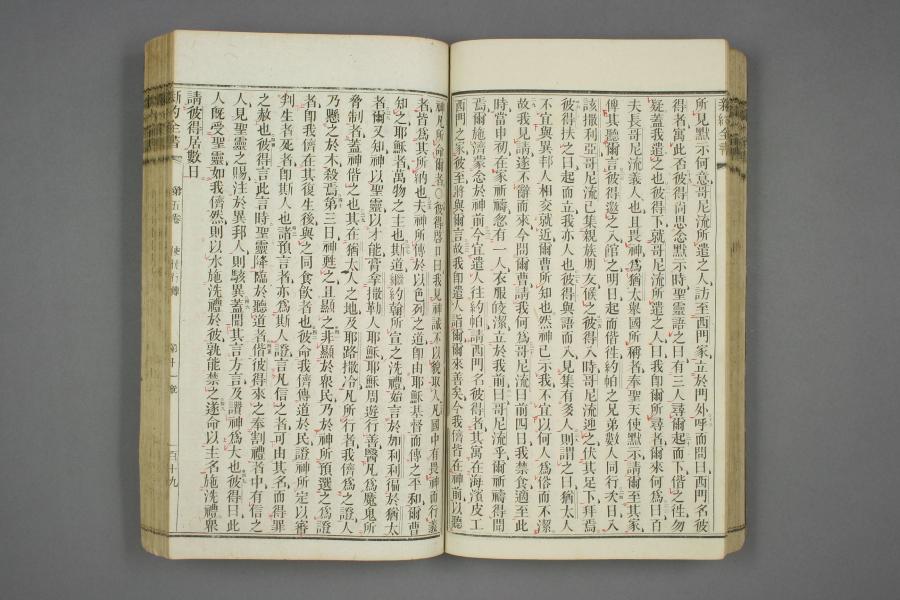 所見默示何意哥尼流所遣之人訪至西門家立於門外呼而問曰西門名彼
得者寓此否彼得尙思念默示時聖靈語之曰有三人尋爾起而下偕之往勿
疑蓋我遣之也彼得下就哥尼流所遣之人曰我卽爾所尋者爾來何爲曰百
夫長哥尼流義人也且畏神爲猶太舉國所稱者奉聖天使默示請爾至其家
俾其聽爾言彼得邀之入館之明日起而偕往約帕之兄弟數人同行次日入
該撒利亞哥尼流已集親族朋友候之彼得入時哥尼流迎之伏其足下拜焉
彼得扶之曰起而立我亦人也彼得與語而入見集有多人則謂之曰猶太人
不宜與異邦人相交就近爾曹所知也然神已示我不宜以何人爲俗而不潔
故我見請遂不辭而來今問爾曹請我何爲哥尼流曰前四日我禁食適至此
時當申初在家祈禱忽有一人衣服皎潔立於我前曰哥尼流乎爾祈禱得聞
焉爾施濟蒙念於神前今宜遣人往約帕請西門名彼得者其寓在海濱皮工
西門之家彼至將與爾言故我卽遣人詣爾爾來善矣今我儕皆在神前以聽
神凡所命爾者○彼得啓口曰我見神誠不以貌取人凡國中有畏神而行義
者皆爲其所納也夫神所傳於以色列之道卽由耶穌基督而傳之平和爾曹
知之耶穌者萬物之主也斯道繼約翰所宣之洗禮始言於加利利徧於猶太
者爾又知神以聖靈以才能膏拿撒勒人耶穌耶穌周遊行善醫凡爲魔鬼所
脅制者蓋神偕之也其在猶太人之地及耶路撒冷凡所行者我儕爲之證人
乃懸之於木殺焉第三日神甦之且顯之非顯於衆民乃於神所預選之爲證
者卽我儕在其復生後與之同食飲者也彼命我儕傳道於民證神所定以審
判生者死者卽斯人也諸預言者亦爲斯人證言凡信之者可由其名而得罪
之赦也彼得言此言時聖靈降臨於聽道者偕彼得來之奉割禮者中有信之
人見聖靈之賜注於異邦人則駭異蓋聞其言方言及讚神爲大也彼得曰此
人旣受聖靈如我儕然則以水施洗禮於彼孰能禁之遂命以主名施洗禮衆
請彼得居數日
新約全書 第五卷 使徒行傳 第十一章 一百十九